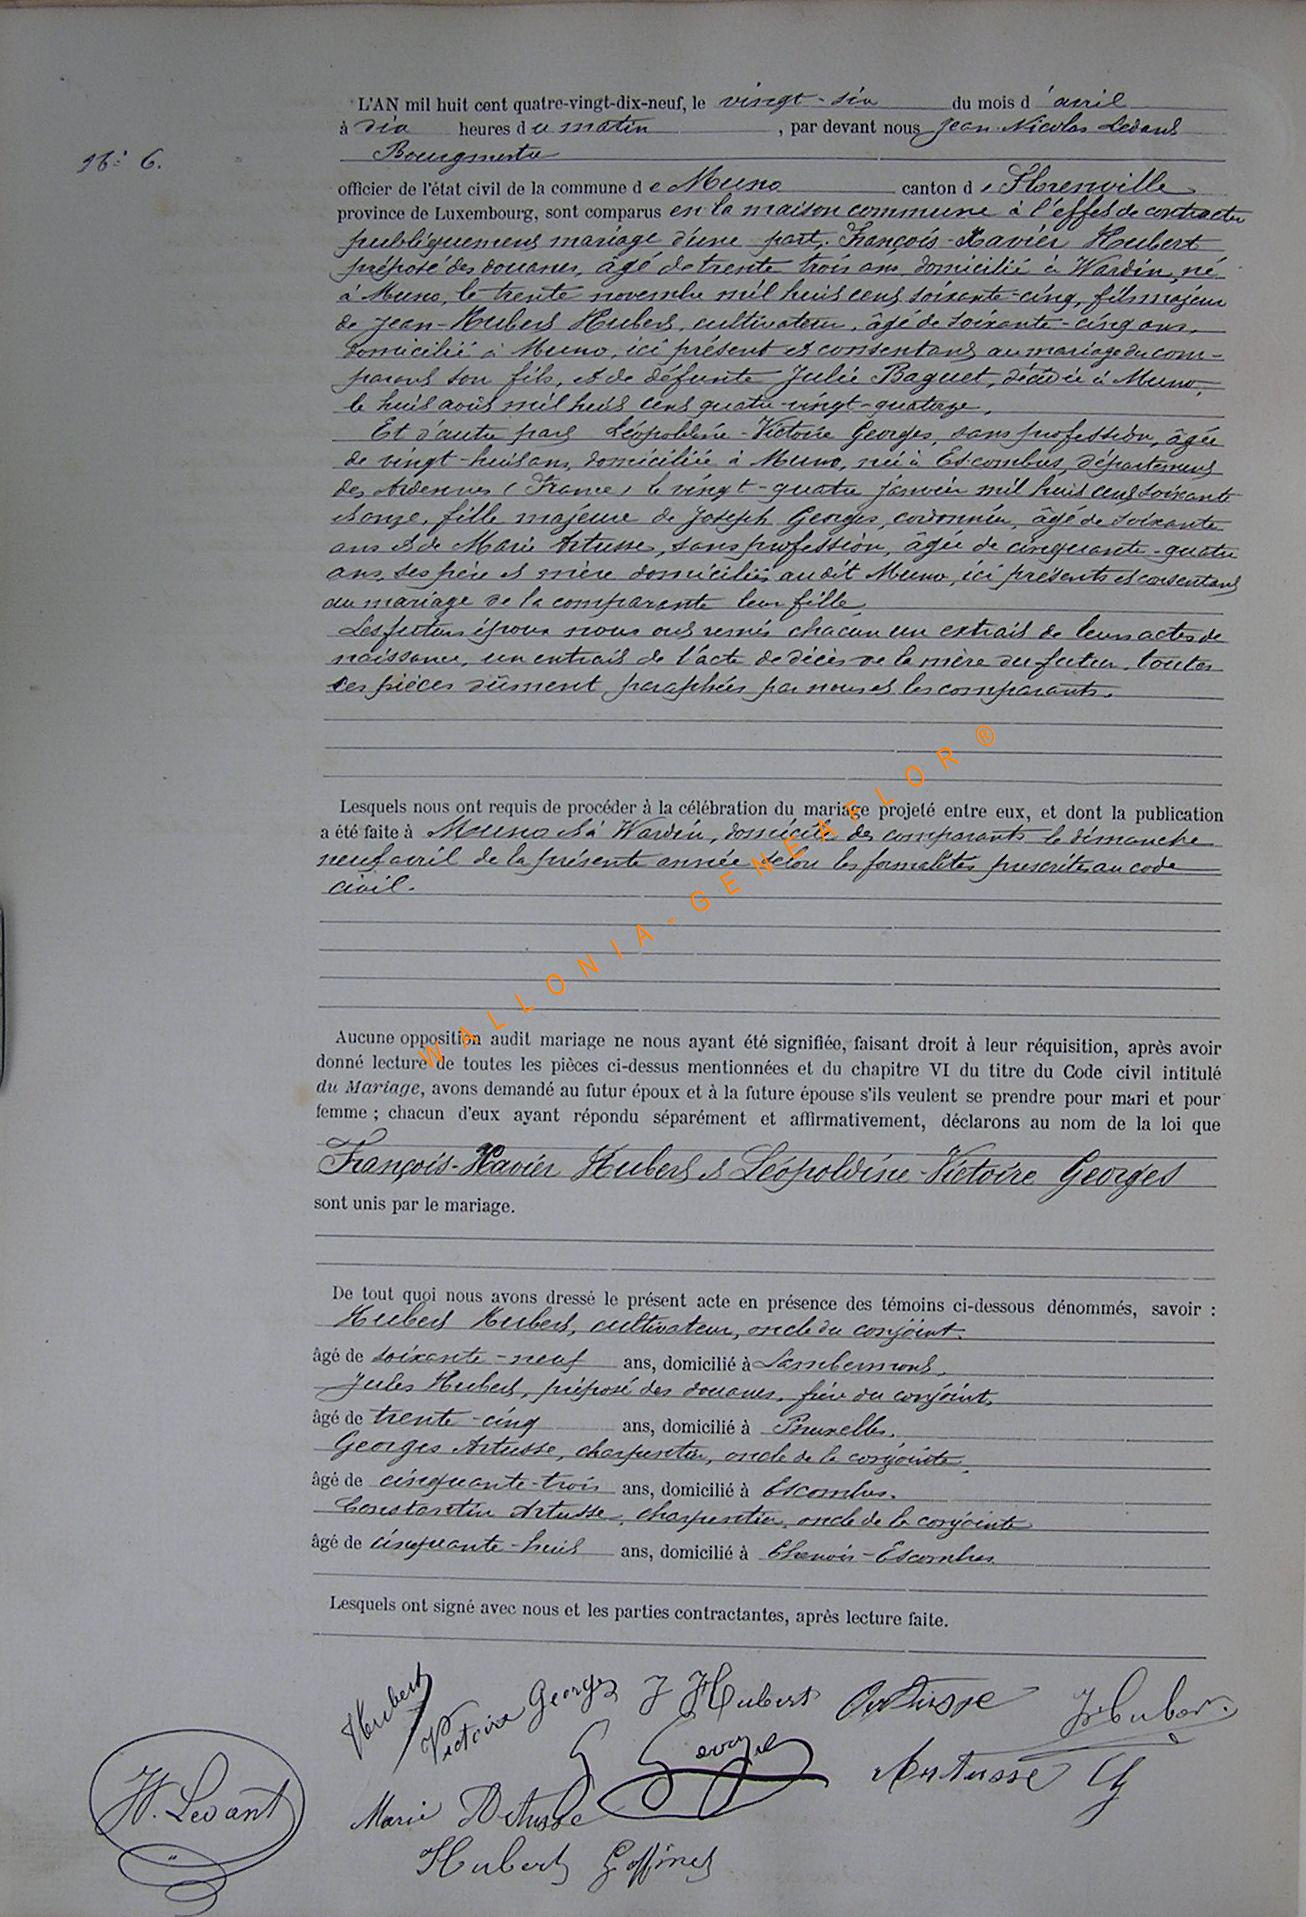 L'AN mil huit cent quatre-vingt-dix-neuf, le vingt-six du mois d'avril
à dix heures du matin, par devant nous Jean-Nicolas Ledant
Bourgmestre
N° 6.
officier de l'état civil de la commune de Muno canton de Florenville
province de Luxembourg, sont comparus en la maison commune à l'effet de contracter
publiquement mariage d'une part, François-Xavier Hubert
préposé des douanes, âgé de trente trois ans, domicilié à Wardin, né
à Muno, le trente novembre mil huit cent soixante-cinq, fils majeur
de Jean-Hubert Hubert, cultivateur, âgé de soixante-cinq ans,
domicilié à Muno, ici présent et consentant au mariage du com-
parant son fils, et de défunte Julie Baguet, décédée à Muno,
le huit août mil huit cent quatre-vingt-quatorze.
Et d'autre part Léopoldine-Victoire Georges, sans profession, âgée
de vingt-huit ans, domiciliée à Muno, née à Escombres, département
des Ardennes (France) le vingt-quatre janvier mil huit cent soixante
et onze, fille majeure de Joseph Georges, cordonnier, âgé de soixante
ans et de Marie Artusse, sans profession, âgée de cinquante-quatre
ans, ses père et mère domiciliés audit Muno, ici présents et consentant
au mariage de la comparante leur fille.
Les futurs époux nous ont remis chacun un extrait de leurs actes de
naissance, un extrait de l'acte de décès de la mère du futur, toutes
ces pièces dûment paraphées par nous et les comparants.
Lesquels nous ont requis de procéder à la célébration du mariage projeté entre eux, et dont la publication
a été faite à Muno et à Wardin, domicile des comparants le dimanche
neuf avril de la présente année selon les formalités prescrites au code
civil.
Aucune opposition audit mariage ne nous ayant été signifiée, faisant droit à leur réquisition, après avoir
donné lecture de toutes les pièces ci-dessus mentionnées et du chapitre VI du titre du Code civil intitulé
du Mariage, avons demandé au futur époux et à la future épouse s'ils veulent se prendre pour mari et pour
femme ; chacun d'eux ayant répondu séparément et affirmativement, déclarons au nom de la loi que
François-Xavier Hubert et Léopoldine-Victoire Georges
sont unis par le mariage.
De tout quoi nous avons dressé le présent acte en présence des témoins ci-dessous dénommés, savoir :
Hubert Hubert, cultivateur, oncle du conjoint.
âgé de soixante-neuf ans, domicilié à Lambermont,
Jules Hubert, préposé des douanes, frère du conjoint,
âgé de trente-cinq ans, domicilié à Bruxelles.
Georges Artusse, charpentier, oncle de la conjointe,
âgé de cinquante-trois ans, domicilié à Escombres.
Constantin Artusse, charpentier, oncle de la conjointe
âgé de cinquante-huit ans, domicilié à Chenois-Escombres
Lesquels ont signé avec nous et les parties contractantes, après lecture faite.
Hubert Victoire Georges J Hubert Artusse J Hubert
Georges Artusse
N. Ledant Marie Artusse
Hubert Goffinet
WALLONIA-GENEAFLOR ®